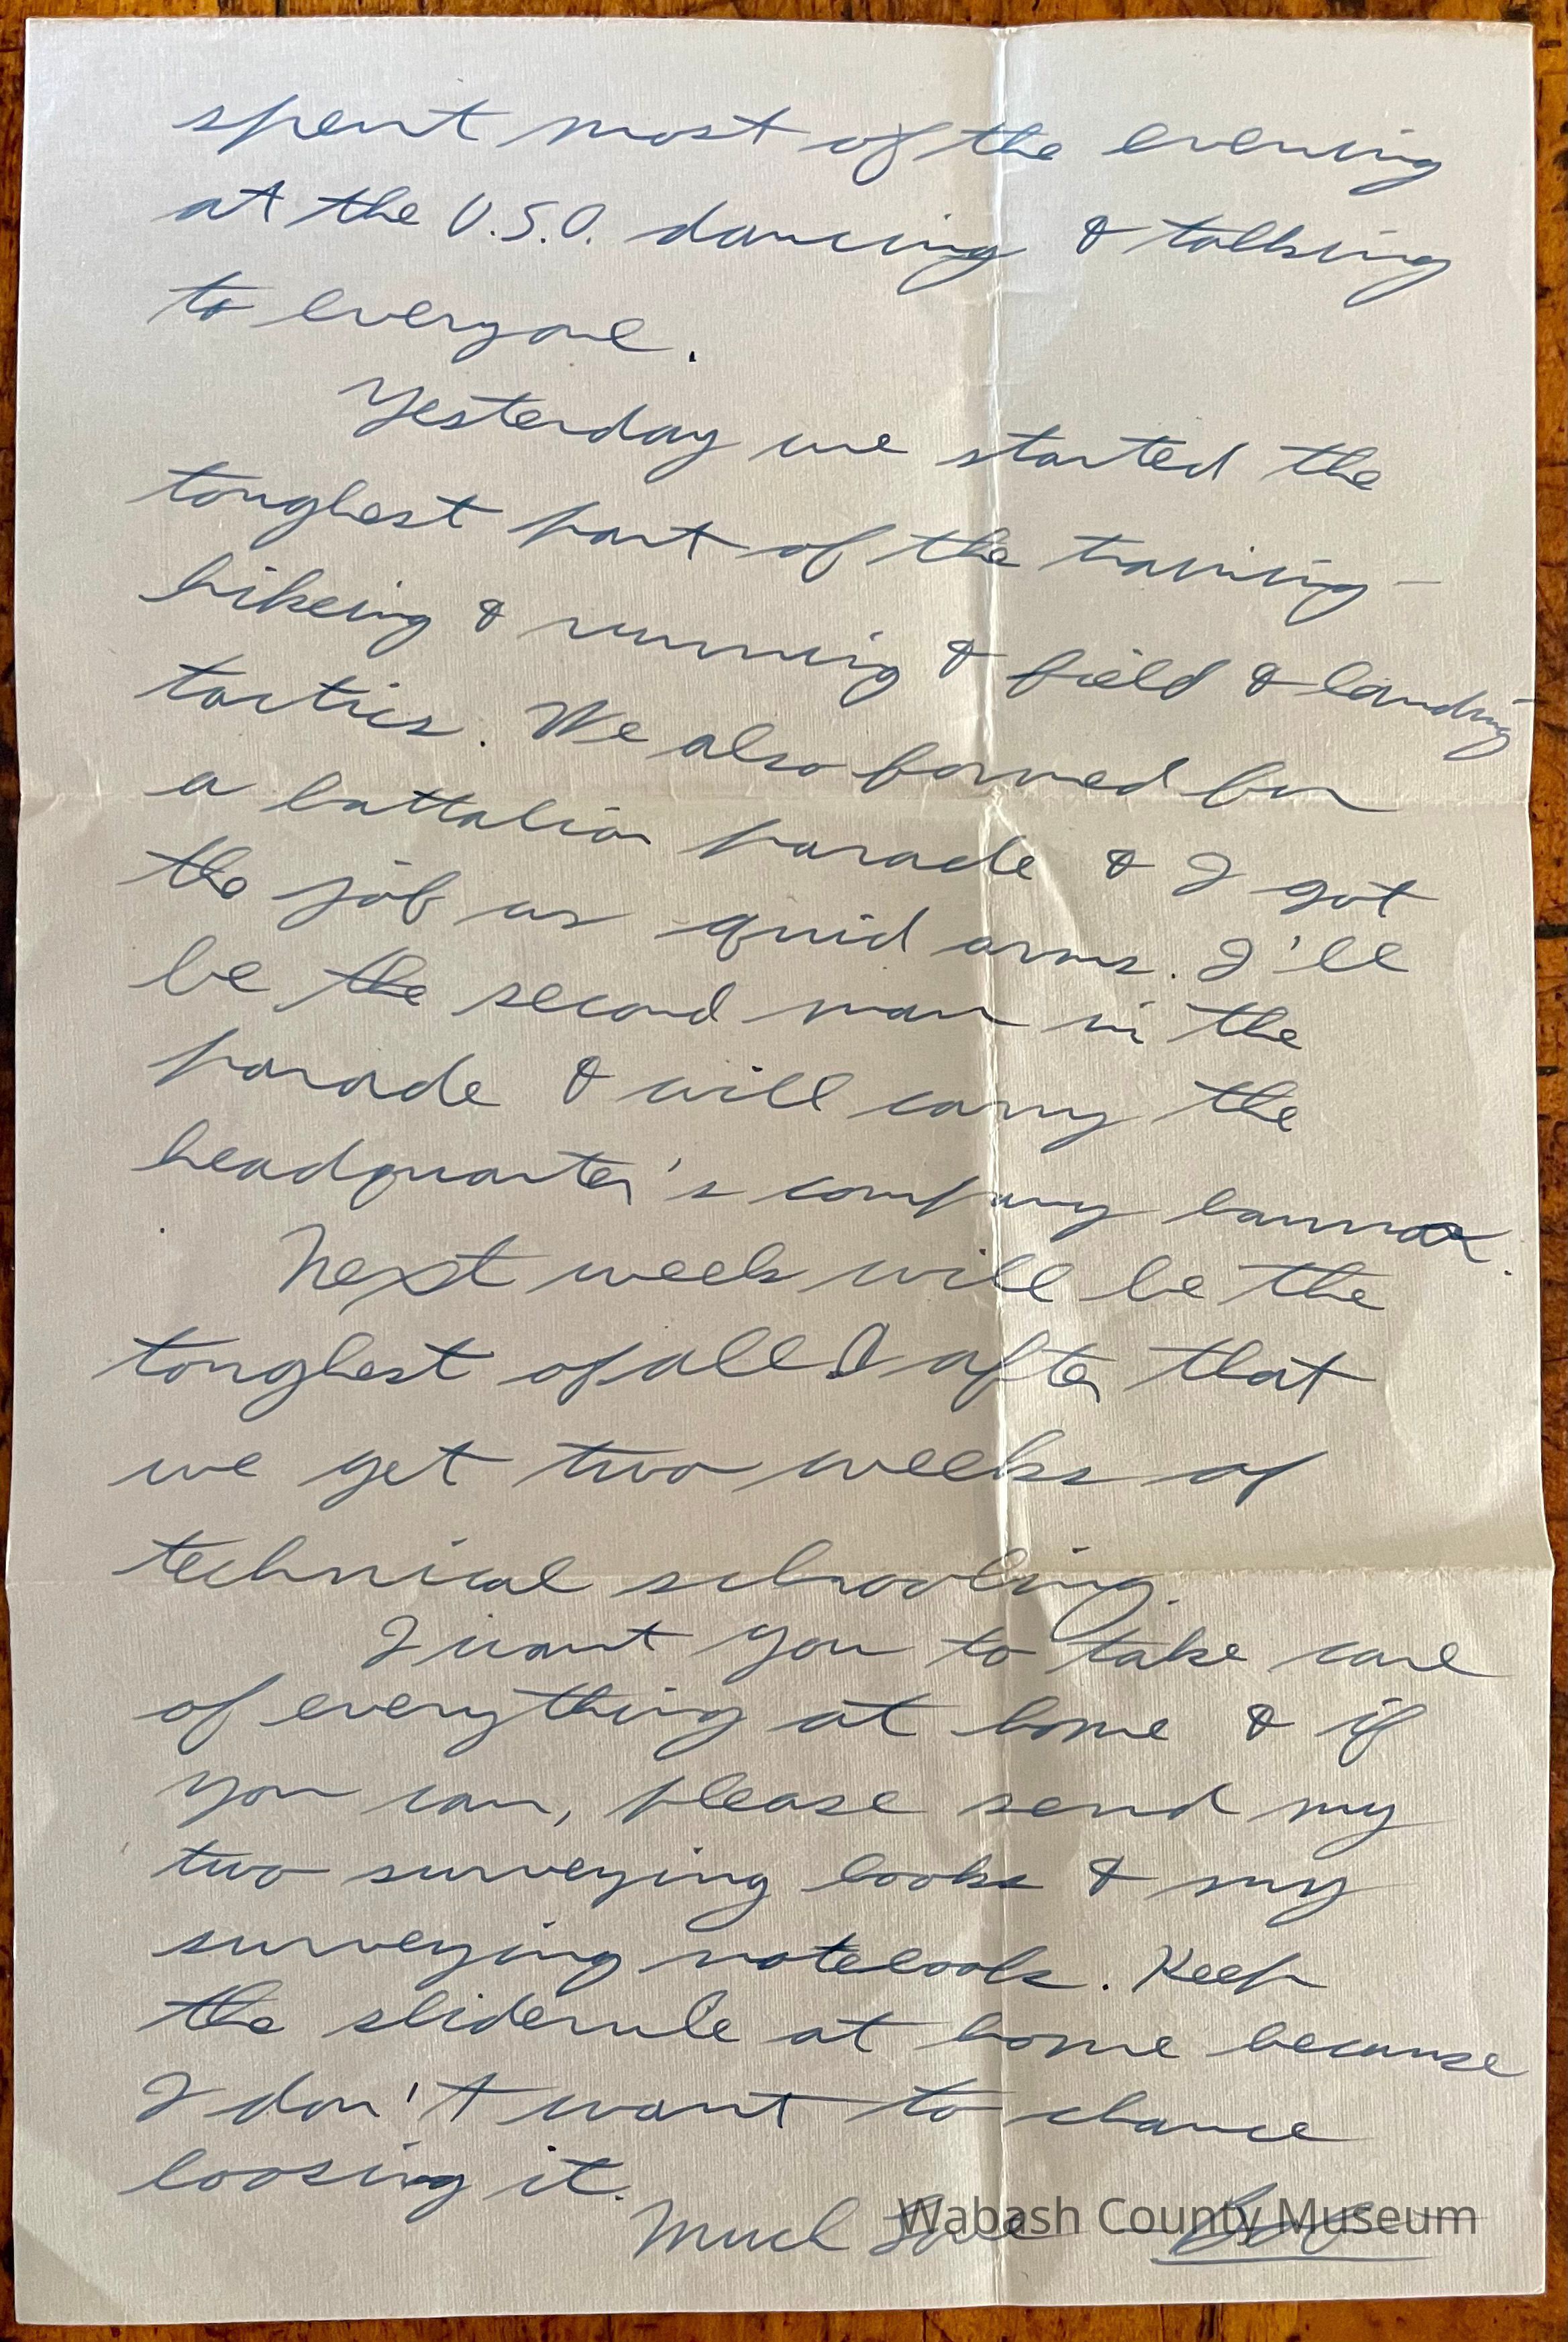 spent most of the evening
at the U.S.O. dancing & talking
to everyone.
Yesterday we started the
toughest part of the training –
hikeing & running & field & landing
tactics. We also formed for
a battalion parade & I got
the job as quid arms. I'll
be the second man in the
parade & will carry the
headquarter's company banner.
Next week will be the
toughest of all & after that
we get two weeks of
technical schooling.
I want you to take care
of everything at home & if
you can, please send my
two surveying books & my
surveying notebook. Keep
the sliderule at home because
I don't want to chance
loosing it.
Much Love Bob
Wabash County Museum